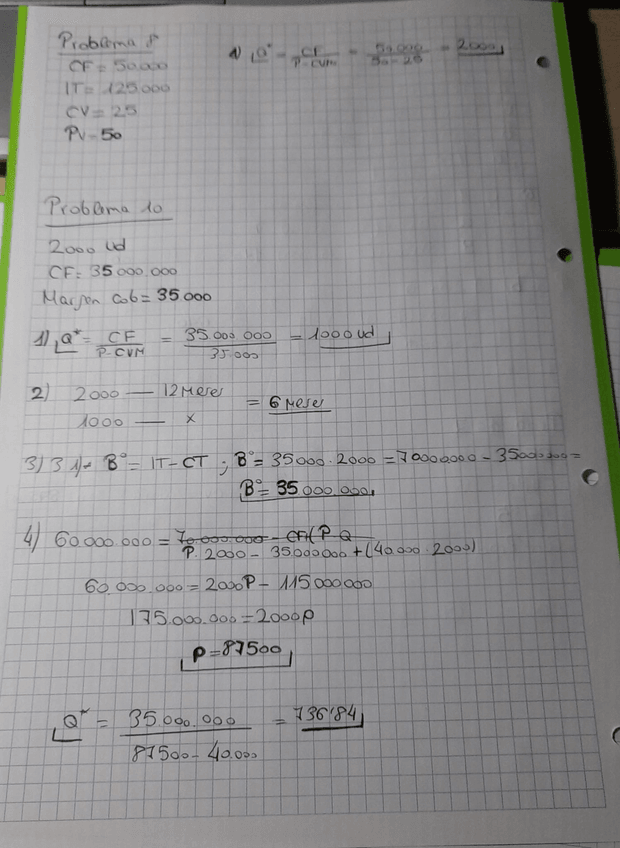 Problema 8
CF = 50.000
IT = 125.000
CV = 25
PV = 50
1) Q* = CF / P-CVM = 50.000 / 50-25 = 2000
Problema 10
2000 ud
CF: 35 000.000
Margen Cob = 35 000
1) Q* = CF / P-CVM = 35.000 000 / 35.000 = 1000 ud
2) 2000 — 12 Meses = 6 Meses
1000 — x
3) 3.1) B° = IT - CT ; B° = 35000 . 2000 = 70000000 - 35000.000 =
B° = 35 000 000
4) 60.000.000 = 70.000.000 - CF+( P Q
P. 2000 - 35000000 + (40.000 . 2000)
60.000.000 = 2000P - 115000000
175.000.000 = 2000p
P = 87500
Q* = 35.000.000 / 87500 - 40.000 = 736'84